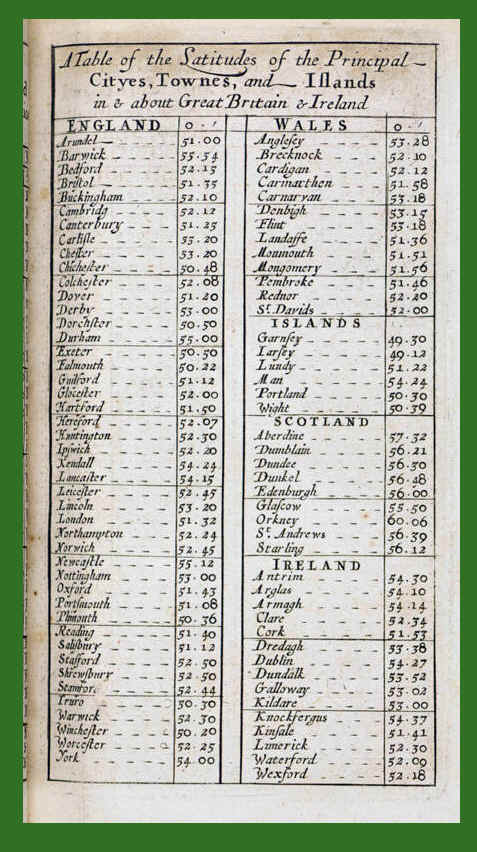 A Table of the Latitudes of the Principal
Cityes, Townes, and Islands
in & about Great Britain & Ireland
ENGLAND o . ′
Arundel 51.00
Barwick 55.54
Bedford 52.15
Bristol 51.35
Buckingham 52.10
Cambridg 52.12
Canterbury 51.25
Carlisle 55.20
Chester 53.20
Chichester 50.48
Colchester 52.08
Dover 51.20
Derby 53.00
Dorchster 50.50
Durham 55.00
Exeter 50.50
Falmouth 50.22
Guilford 51.12
Glocester 52.00
Hartford 51.50
Hereford 52.07
Huntington 52.30
Ipswich 52.20
Kendall 54.24
Lancaster 54.15
Leicester 52.45
Lincoln 53.20
London 51.32
Northampton 52.24
Norwich 52.45
Newcastle 55.12
Nottingham 53.00
Oxford 51.43
Portsmouth 51.08
Plimouth 50.36
Reading 51.40
Salisbury 51.12
Stafford 52.50
Shrewsbury 52.50
Stamfor. 52.44
Truro 50.30
Warwick 52.30
Winchester 50.20
Worcester 52.25
York 54.00
WALES o . ′
Anglesey 53.28
Brecknock 52.10
Cardigan 52.12
Carmarthen 51.58
Carnarvan 53.18
Denbigh 53.15
Flint 53.18
Landaffe 51.36
Monmouth 51.51
Mongomery 51.56
Pembroke 51.46
Rednor 52.20
St. Davids 52.00
ISLANDS
Garnsey 49.30
Iarsey 49.12
Lundy 51.22
Man 54.24
Portland 50.30
Wight 50.39
SCOTLAND
Aberdine 57.32
Dumblain 56.21
Dundee 56.30
Dunkel 56.48
Edenburgh 56.00
Glascow 55.50
Orkney 60.06
St. Andrews 56.39
Starling 56.12
IRELAND
Antrim 54.30
Arglas 54.10
Armagh 54.14
Clare 52.34
Cork 51.53
Dredagh 53.38
Dublin 54.27
Dundalk 53.52
Galloway 53.02
Kildare 53.00
Knockfergus 54.37
Kinsale 51.41
Limerick 52.30
Waterford 52.09
Wexford 52.18